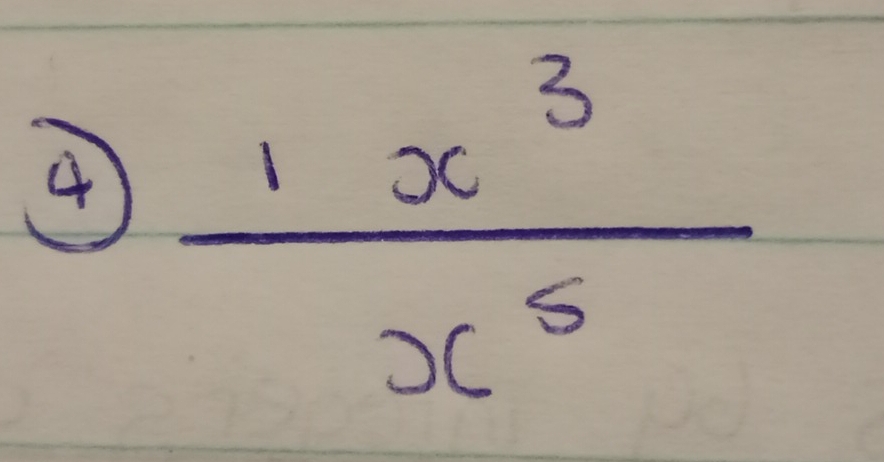 ④ 1 x³
x⁵